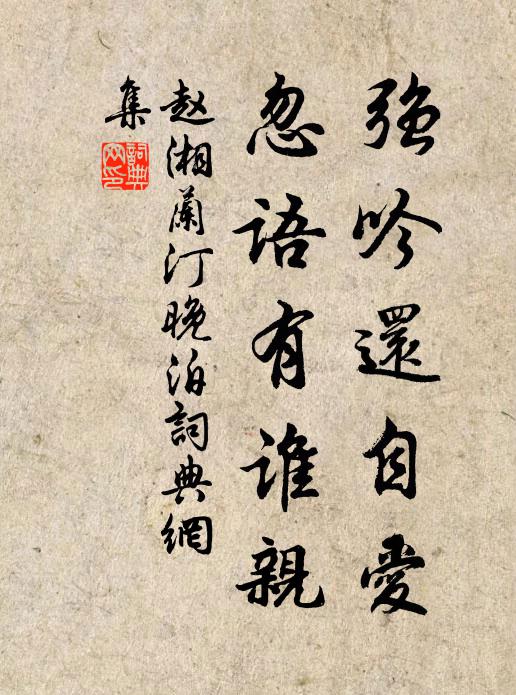 強吟還自愛
忽語有誰親
赵湘蘭汀晚泊詞典網
集
詞典網印